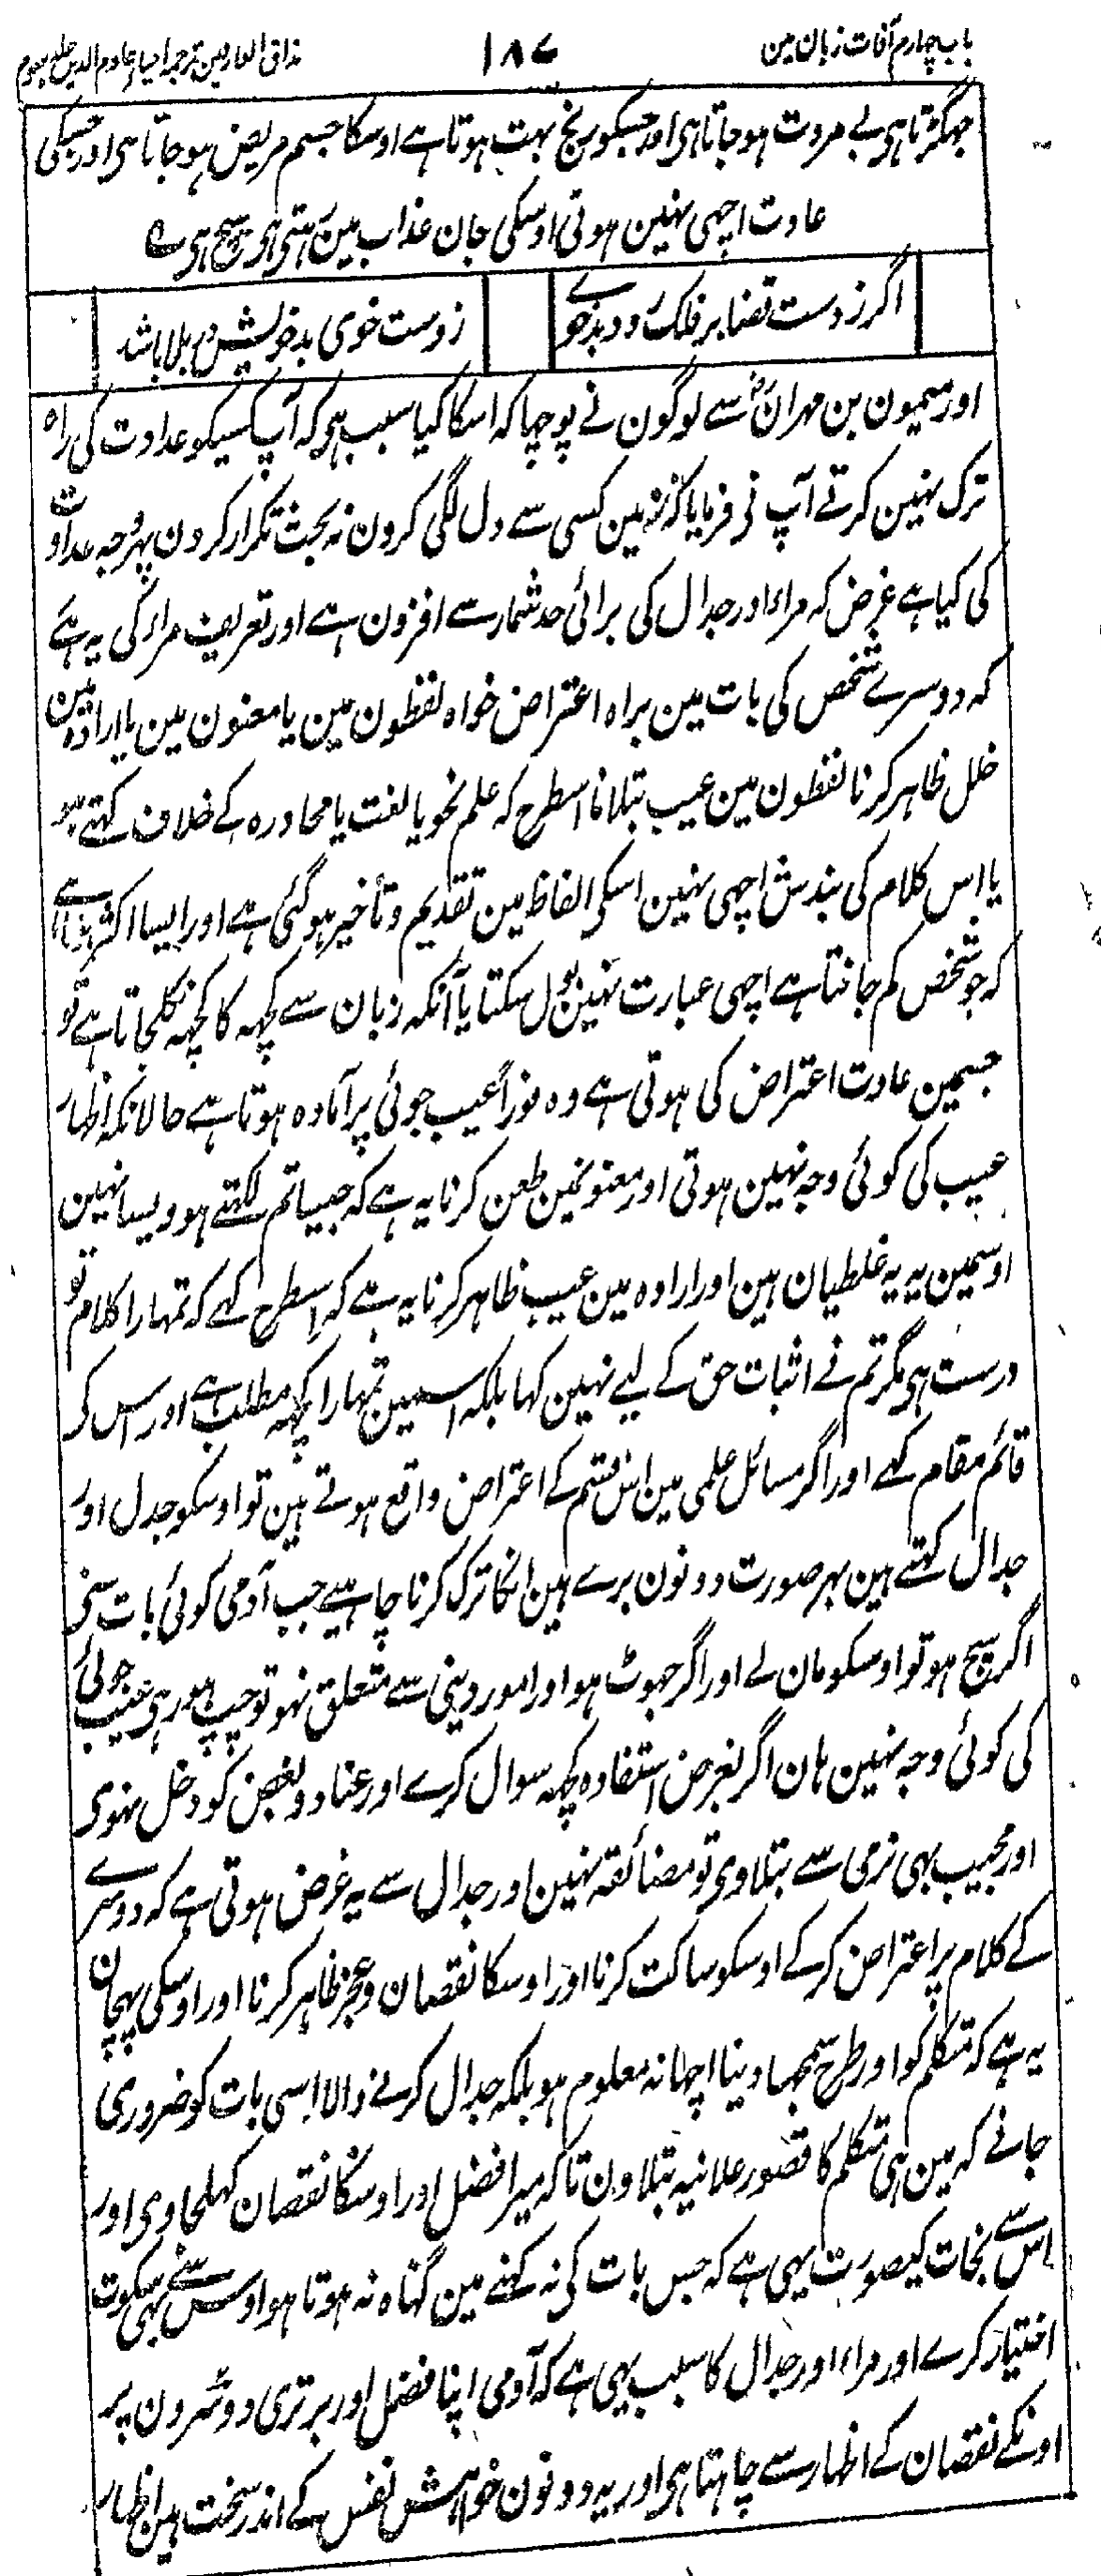 باب چہارم آفات زبان مین
۱۸۷
مذاق العارفین ترجمہ احیاء علوم الدین جلد سوم
جہگڑتا ہی بے مروت ہو جاتا ہی اور جسکو رنج بہت ہوتا ہے اوسکا جسم مریض ہو جاتا ہی اور جسکی
عادت اچھی نہین ہوتی اوسکی جان عذاب مین رہتی ہی سچ ہی ے
اگر ز دست قضا بر فلک رود بدخوے
ز دست خوی بد خویش در بلا باشد
اور میمون بن مہران رح سے لوگون نے پوچہا کہ اسکا کیا سبب ہی کہ آپ کسیکو عداوت کی راہ
ترک نہین کرتے آپ نی فرمایا کہ نہ مین کسی سے دل لگی کرون نہ بحث تکرار کرون پہر وجہ عداوت
کی کیا ہے غرض کہ مراء اور جدال کی برائی حد شمار سے افزون ہے اور تعریف مراء کی یہ ہے
کہ دوسرے شخص کی بات مین براہ اعتراض خواہ لفظون مین یا معنون مین یا ارادہ مین
خلل ظاہر کرنا لفظون مین عیب بتلانا اسطرح کہ علم نحو یا لغت یا محاورہ کے خلاف کہتے ہو
یا اس کلام کی بندش اچھی نہین اسکی الفاظ مین تقدیم و تأخیر ہو گئی ہے اور ایسا اکثر ہوتا ہے
کہ جو شخص کم جانتا ہے اچھی عبارت نہین بول سکتا یا آنکہ زبان سے کچہہ کا کچہہ نکلجاتا ہے تو
جسمین عادت اعتراض کی ہوتی ہے وہ فوراً عیب جوئی پر آمادہ ہوتا ہے حالانکہ اظہار
عیب کی کوئی وجہ نہین ہوتی اور معنونمین طعن کرنا یہ ہے کہ جیسا تم کہتے ہو ویسا نہین
اوسمین یہ یہ غلطیان ہین اور ارادہ مین عیب ظاہر کرنا یہ ہے کہ اسطرح کہے کہ تمہارا کلام تو
درست ہی مگر تم نے اثبات حق کے لیے نہین کہا بلکہ اسمین تمہارا کچہہ مطلب ہے اور اس کی
قائم مقام کہے اور اگر مسائل علمی مین اس قسم کے اعتراض واقع ہوتے ہین تو اوسکو جدل اور
جدال کہتے ہین بہر صورت دونون برے ہین انکا ترک کرنا چاہیے جب آدمی کوئی بات سنی
اگر سچ ہو تو اوسکو مان لے اور اگر جہوٹ ہو اور امور دینی سے متعلق نہو تو چپ ہو رہی عیب جوئی
کی کوئی وجہ نہین ہان اگر بغرض استفادہ کچہہ سوال کرے اور عناد و بغض کو دخل نہوی
اور مجیب بہی نرمی سے بتلاوی تو مضائقہ نہین اور جدال سے یہ غرض ہوتی ہے کہ دوسرے
کے کلام پر اعتراض کرکے اوسکو ساکت کرنا اور اوسکا نقصان و عجز ظاہر کرنا اور اوسکی پہچان
یہ ہے کہ متکلم کو اور طرح سمجہا دینا اچہا نہ معلوم ہو بلکہ جدال کرنے والا اسی بات کو ضروری
جانے کہ مین ہی متکلم کا قصور علانیہ بتلاون تاکہ میرا فضل اور اوسکا نقصان کہلجاوی اور
اس سے نجات کیصورت یہی ہے کہ جس بات کی نہ کہنے مین گناہ نہ ہوتا ہو اوس سے بہی سکوت
اختیار کرے اور مراء اور جدال کا سبب یہی ہے کہ آدمی اپنا فضل اور برتری دوسرون پر
اونکے نقصان کے اظہار سے چاہتا ہی اور یہ دونون خواہش نفس کے اندر سخت ہین اظہار